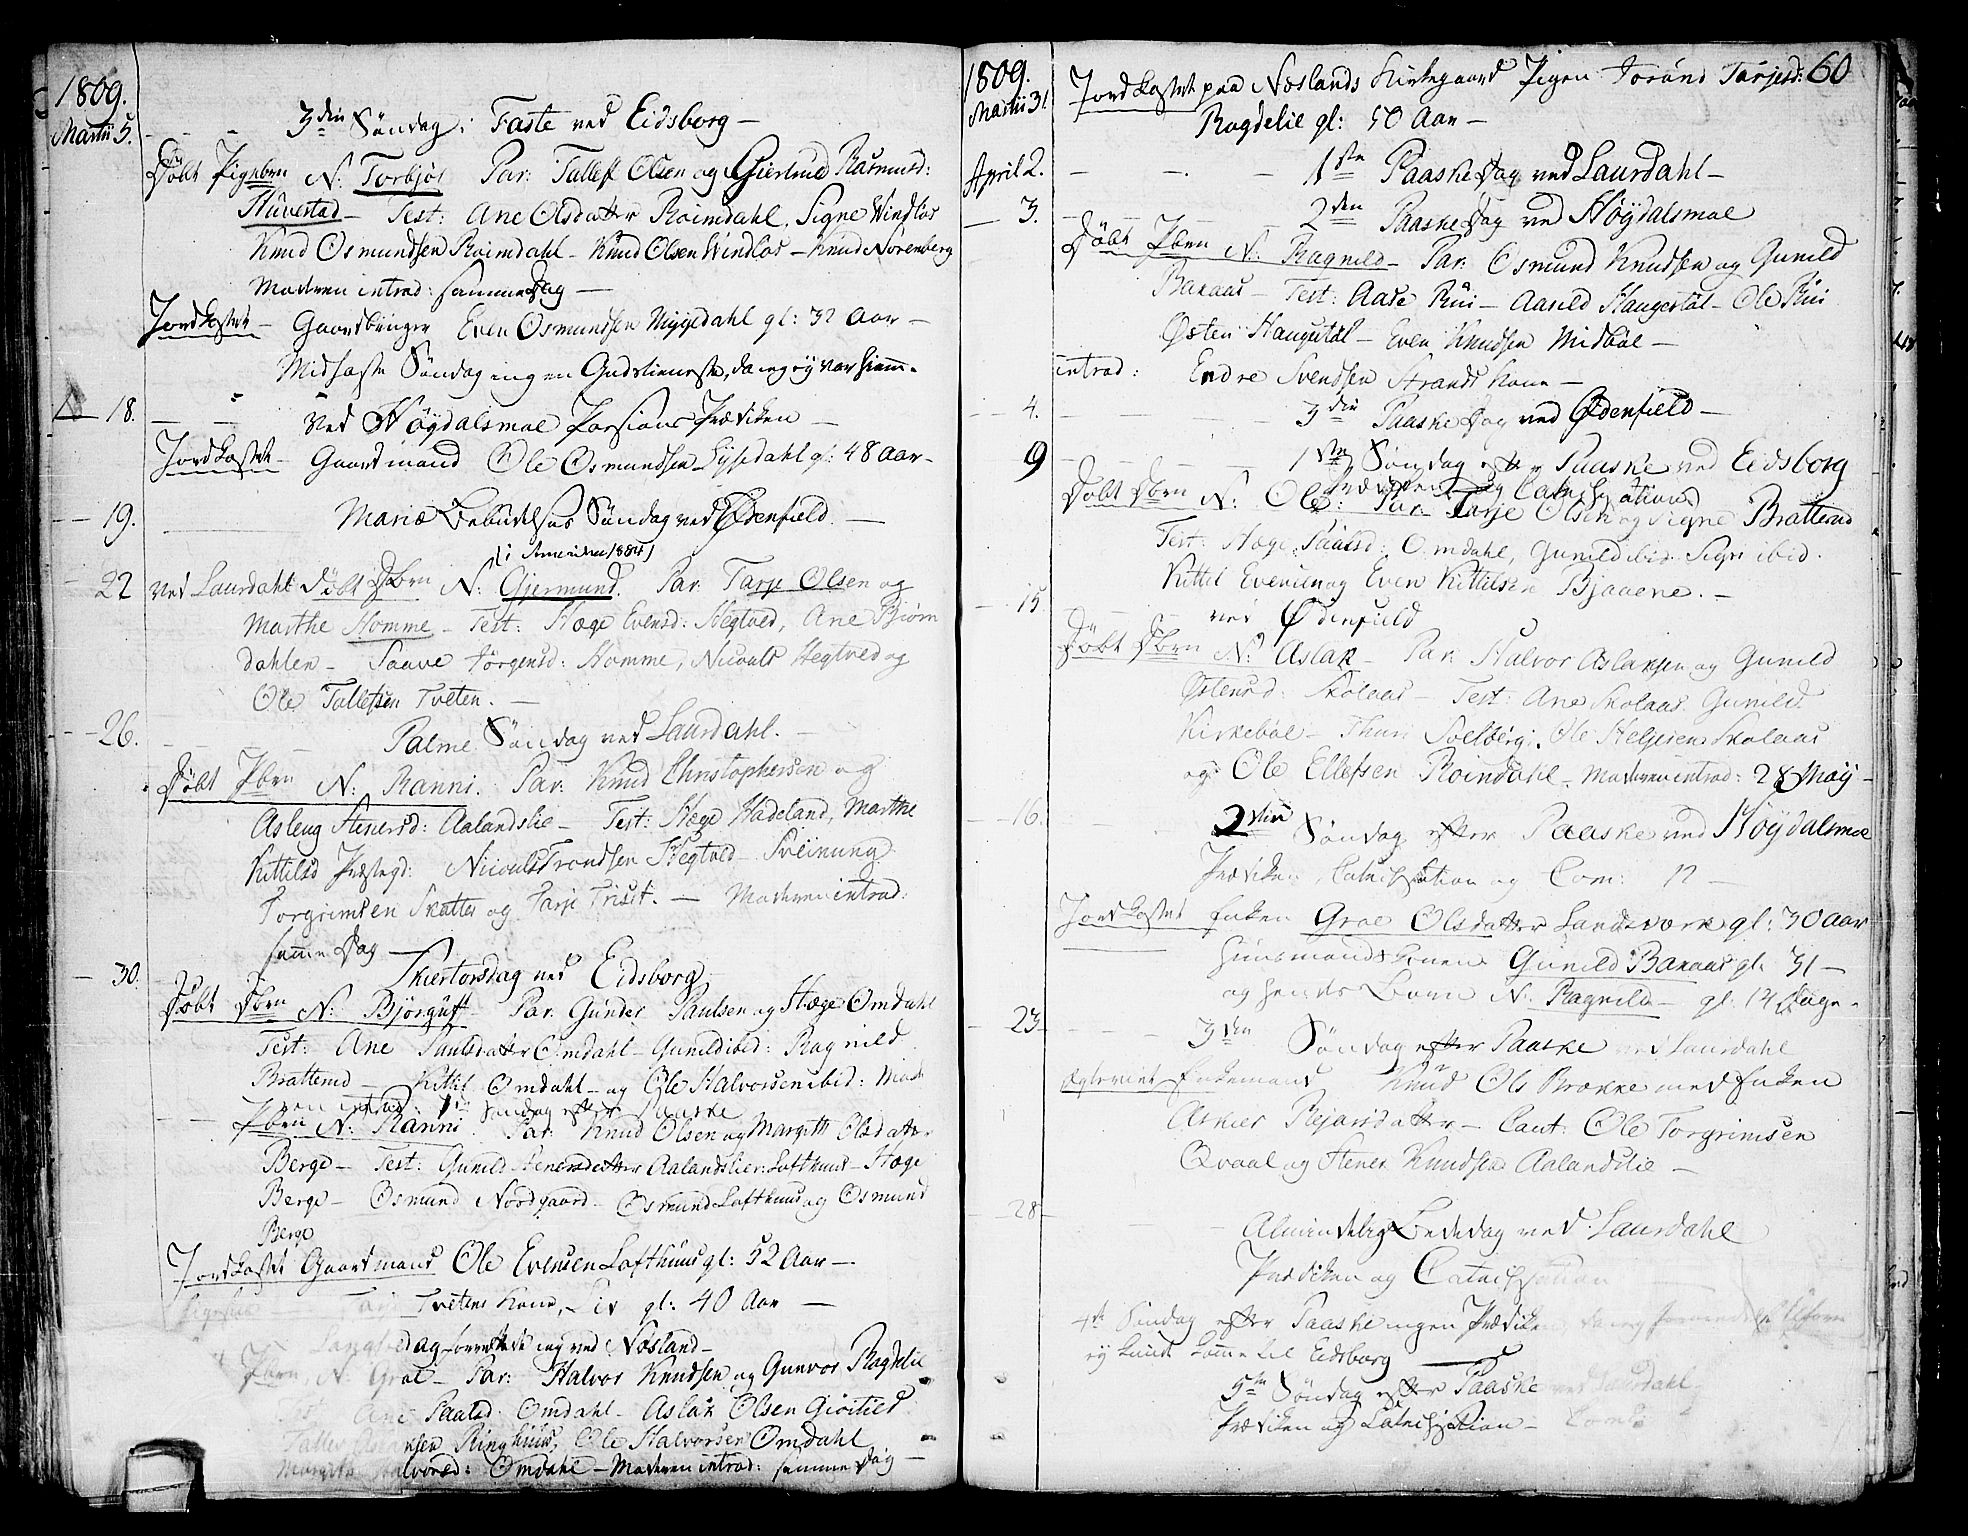 1809.
Martii 5.
3die Søndag i Faste ved Eidsborg —
Døbt Pigebrn N: Torbjør Par: Tallef Olsen og Gierlued Rasmusd:
Huvestad — Test: Ane Olsdatter Roimdahl. Signe Windlos
Knud Osmundsen Roimdahl — Knud Olsen Windlos — Knud Norenberg
Moderen introd: samme Dag —
Jordkastet — Gaardbruger Even Osmundsen Myggedahl gl: 32 Aar —
Midfaste Søndag ingen Gudstieneste, da jeg ej var hiemme
— 18. ved Høydalsmoe Passions Prædiken —
Jordkastet Gaardmand Ole Osmundsen Lysedahl gl: 48 Aar —
— 19. Mariæ Bebudelses Søndag ved Ødenfield. —
(i Amerika 1884)
— 22 ved Laurdahl Døbt Dbrn N: Gjermund. Par: Tarje Olsen og
Marthe Homme — Test: Hæge Evensd: Hegtved, Ane Bjørn
dahlen — Saave Jørgensd: Homme, Nicouls Hegtved og
Ole Tallefsen Tveten. —
— 26. Palme Søndag ved Laurdahl. —
Døbt Pbrn N: Ranni. Par: Knud Christophersen og
Asleug Stenersd: Aalandslie — Test: Hæge Hadeland, Marthe
Kittilsd Præstegd: Nicouls Trondsen Hegtved — Sveinung
Torgrimsen Skatter og Tarje Trisæt. — Moderen introd:
samme Dag —
— 30. Skiertorsdag ved Eidsborg —
Døbt Dbrn N: Bjørguf Par: Gunder Paulsen og Hæge Omdahl
Test: Ane Paulsdatter Omdahl — Gunild ibid: Ragnild
Bratterud — Kittil Omdahl — og Ole Halvorsen ibid: Mod
ren introd: 1ste Søndag efter Paaske
Pbrn N: Ranni. Par: Knud Olsen og Margith Olsdatter
Berge — Test: Gunild Stenersdatter Aalandslie: Lofthuus — Hæge
Berge — Osmund Nordgaard — Osmund Lofthuus og Osmund
Berge
Jordkastet Gaardmand Ole Evensen Lofthuus gl: 52 Aar —
Tarje Tvetens Kone, Liv gl: 40 Aar —
Langfredag forrettede jeg ved Nosland —
Pbrn, N: Groe — Par: Halvor Knudsen og Gunvor Ragdelie
Ane Paalsd Omdahl — Aslak Olsen Gioitild
Tallev Ringhuus, Ole Halvorsen Omdahl
Margith Halvorsd: Omdahl — Moderen introd: samme Dag —
1809.
Martii 31.
60
Jordkastet paa Noslands Kirkegaard Pigen Torund Tarjesd:
Ragdelie gl: 50 Aar —
April 2. — 1ste Paaske Dag ved Laurdahl —
— 3. — 2den Paaske Dag ved Høydalsmoe
Døbt Pbrn N: Ragnild — Par: Osmund Knudsen og Gunild
Bakaas — Test: Aase Rui — Aarild Haugestøl — Ole Rui
Østen Haugestøl — Even Knudsen Midbøe —
introd: Endre Svendsen Strands Kone —
— 4. — 3die Paaske Dag ved Ødenfield —
9 — 1ste Søndag efter Paaske ved Eidsborg
Prædiken og Catechisation
Døbt Dbrn N: Ole: Par: Tarje Olsen og Signe Bratterud
Test: Hæge Paalsd: Omdahl, Gunild ibid. Signe ibid.
Kittil Evensen og Even Kittilsen Bjaaene. —
— 15. ved Ødenfield
Døbt Dbrn N: Aslak — Par: Halvor Aslaksen og Gunild
Østensd: Skolaas — Test: Ane Skolaas Gunild
Kirkebøe — Thuri Solberg. Ole Helgesen Skolaas
og Ole Ellefsen Roimdahl — Moderen introd: 28 May —
— 16. 2den Søndag efter Paaske ved Høydalsmoe
Prædiken, Catechisation og Com: 12 —
Jordkastet Enken Groe Olsdatter Landsværk gl: 30 Aar
Huusmands Konen Gunild Bakaas gl: 31 —
og hendes Barn N. Ragnild — gl: 14 Dage —
— 23 — 3die Søndag efter Paaske ved Laurdahl
Ægteviet Enkemand Knud Ols Brække med Enken
Asker Rejarsdatter — Caut: Ole Torgrimsen
Qvaal og Stener Knudsen Aalandslie —
— 28 — Almindelig Bededag ved Laurdahl
Prædiken og Catechisation
4de Søndag efter Paaske ingen Prædiken, da jeg formedelst
ej kunde komme til Eidsborg —
5te Søndag efter Paaske ved Laurdahl
Prædiken og Catechisation — Com: